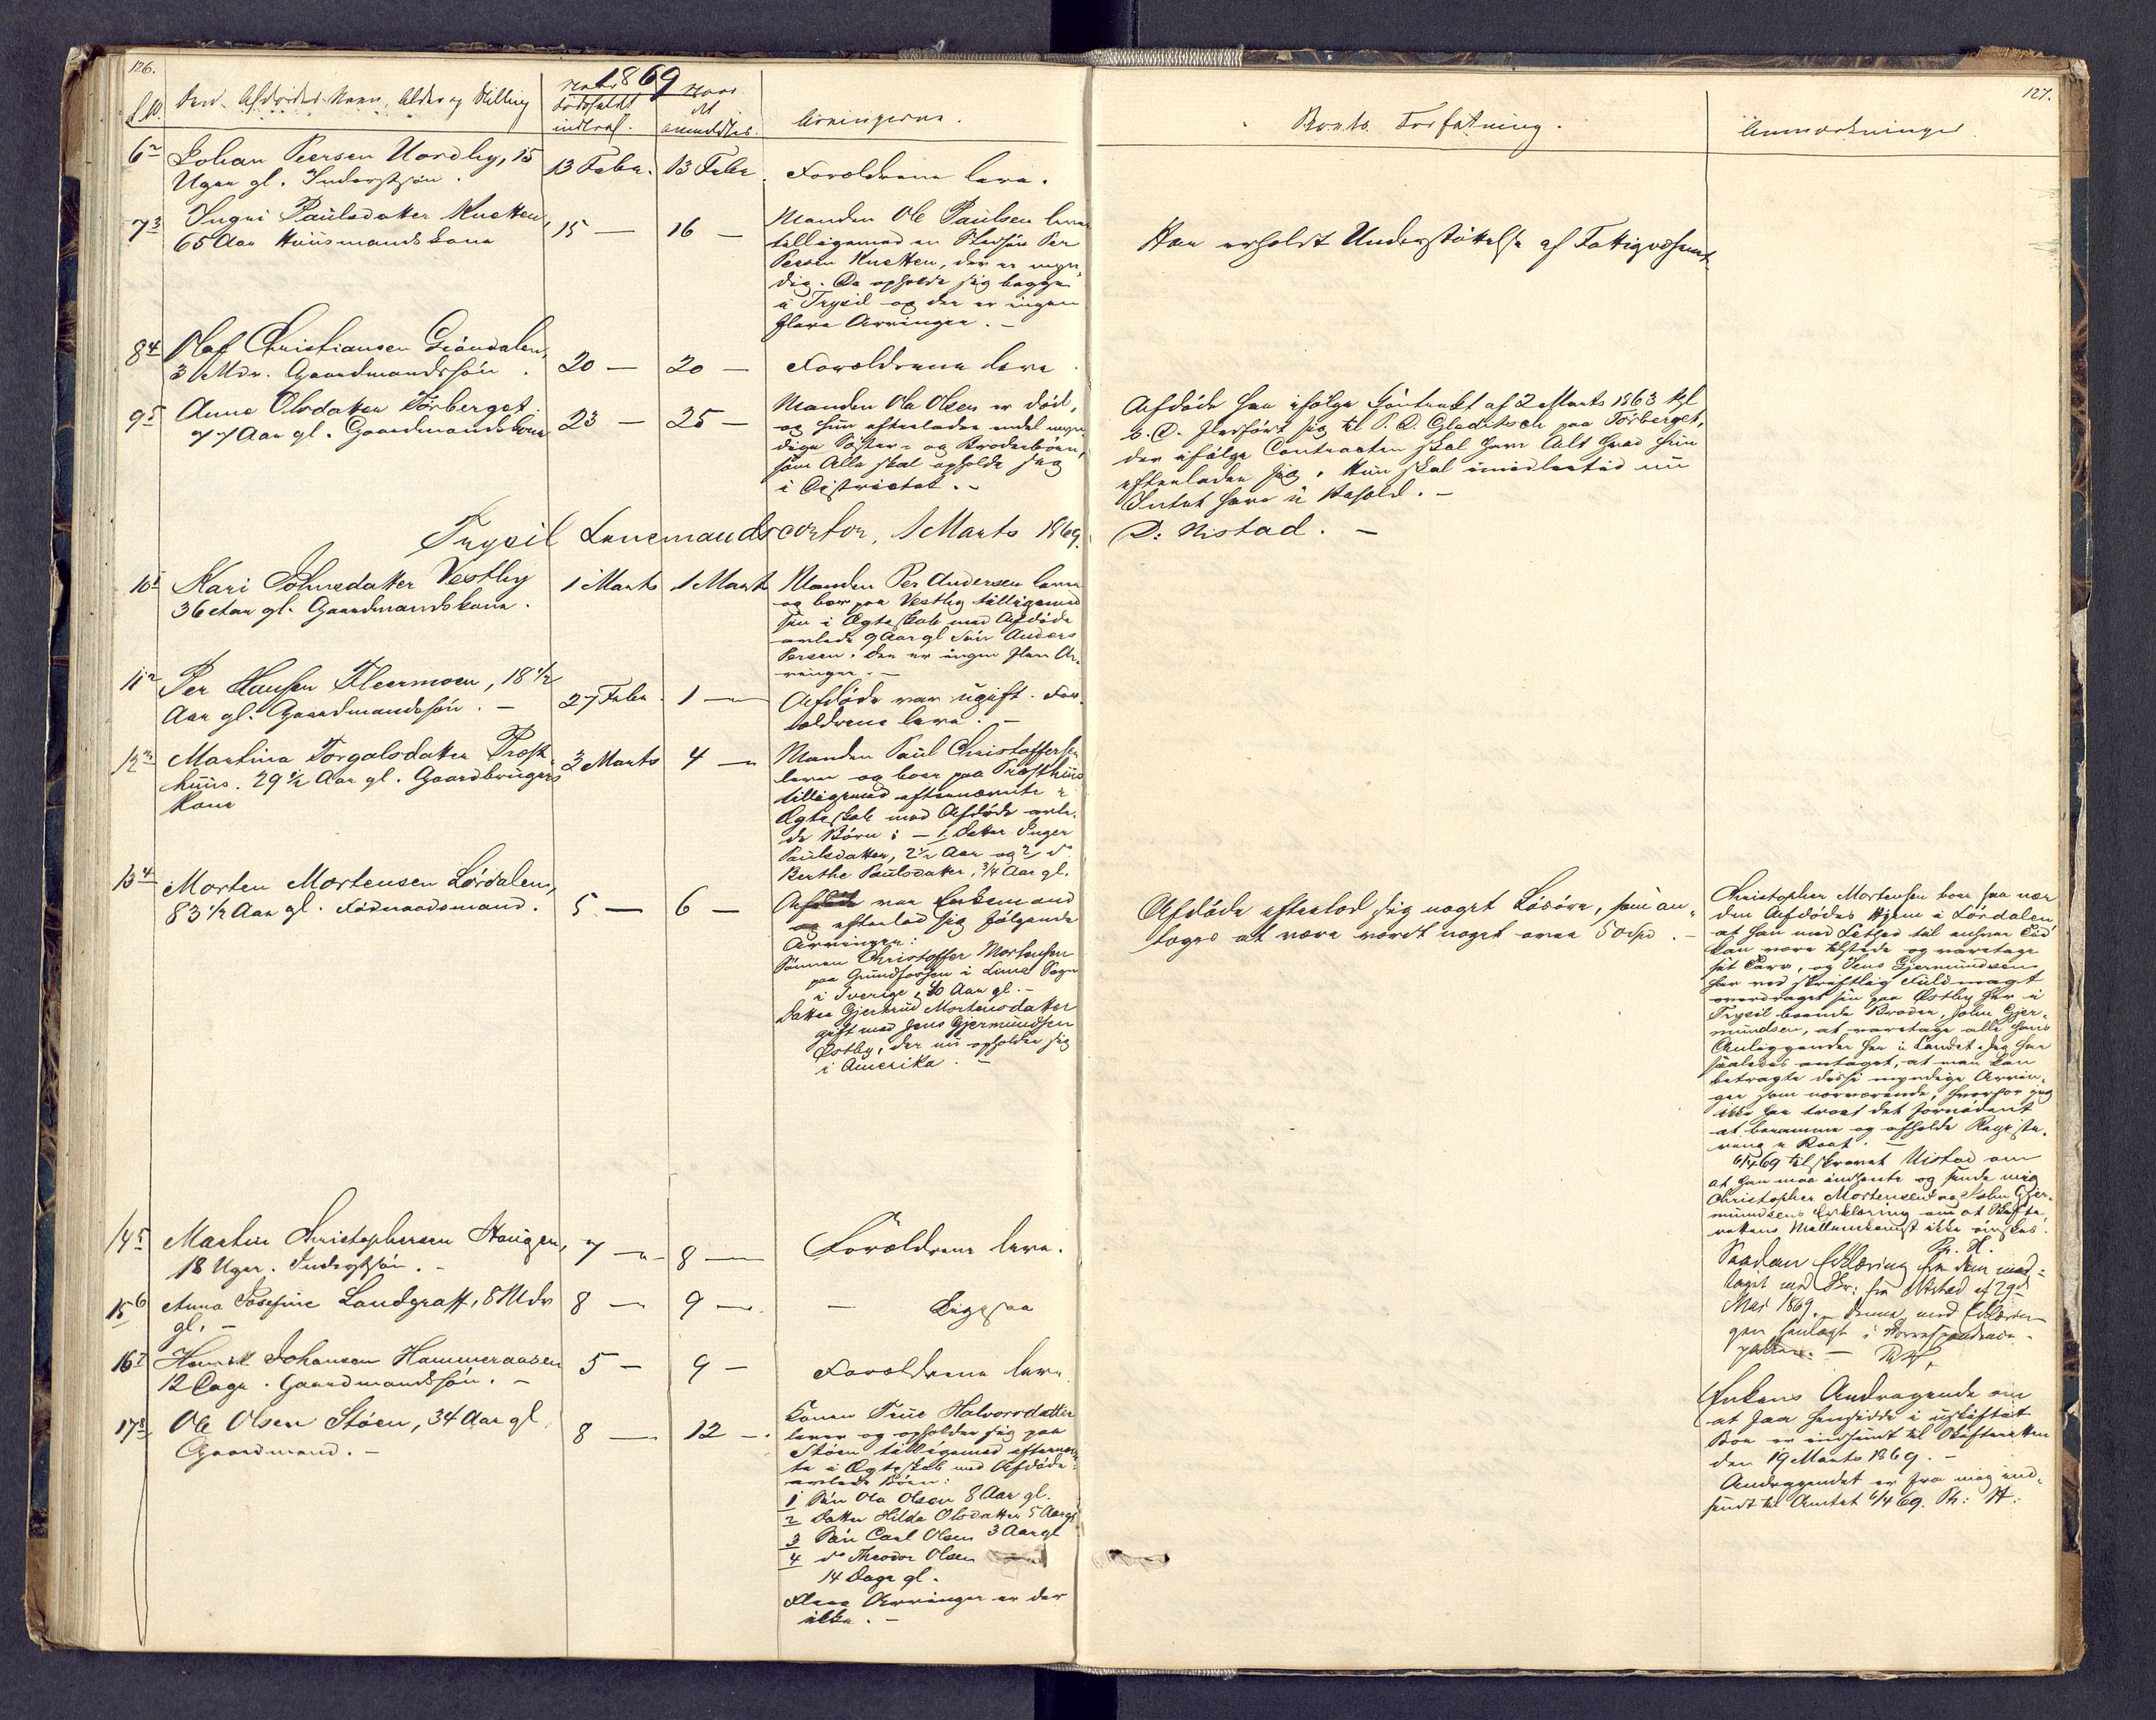 126.
1869
Den Afdødes Navn, Alder og Stilling
Naar Dødsfaldet indtraf.
Naar det anmeldtes.
Arvingerne.
6 2 Johan Peersen Nordby, 15
Uger gl. Inderstsøn.
13 Febr. 13 Febr.
Forældrene leve.
7 3 Ingri Paulsdatter
65 Aar Huusmandskone
15 — 16 —
Manden Ole Paulsen lever
tilligemed en Stedsøn Per
Persen der er myn-
dig. De opholde sig begge
i Trysil og der er ingen
flere Arvinger. —
8 4 Olaf Christiansen Grøndalen,
3 Mdr. Gaardmandssøn.
20 — 20 —
Forældrene leve
9 5 Anne Olsdatter Førberget
77 Aar gl. Gaardmandskone
23 — 25 —
Manden Ole Olsen er død,
og hun efterlader endel myn-
dige Søster- og Broderbørn,
som Alle skal opholde sig
i Districtet. —
Trysil Lensmandscontor, 1 Marts 1869.
10 1 Kari Johnsdatter Vestby
36 Aar gl. Gaardmandskone.
1 Marts 1 Marts
Manden Per Andersen lever
og bor paa Vestby tilligemed
sin i Ægteskab med Afdøde
avlede 9 Aar gl Søn Anders
Persen. Der er ingen flere Ar-
vinger. —
11 2 Per Hansen Fleermoen, 18 1/2
Aar gl. Gaardmandssøn. —
27 Febr. 1 —
Afdøde var ugift. For-
ældrene leve. —
12 3 Martina Torgalsdatter Præst-
huus. 29 1/2 Aar gl. Gaardbrugers
Kone
3 Marts 4 —
Manden Paul Christoffersen
lever og boer paa Præsthuus
tilligemed efternævnte i
Ægteskab med Afdøde avle-
de Børn: — 1 Datter Inger
Paulsdatter, 2 1/2 Aar og 2, do
Berthe Paulsdatter, 3/4 Aar gl.
13 4 Morten Mortensen Lørdalen,
83 1/2 Aar gl. Føderaadsmand.
5 — 6 —
Afdøde var Enkemand
og efterlod sig følgende
Arvinger:
Sønnen Christoffer Mortensen
paa Grundforsen i Lima Sogn
i Sverige, 40 Aar gl. —
Datter Gjertrud Mortensdatter
gift med Jens Gjermundsen
Østby, der nu opholder sig
i Amerika. —
14 5 Martin Christophersen Haugen,
18 Uger. Inderstsøn. —
7 — 8 —
Forældrene leve.
15 6 Anna Josefine Landgraff, 8 Mdr
gl. —
8 — 9 —
— Ligesaa
16 7 Henrik Johansen Hammeraasen
12 Dage. Gaardmandssøn. —
5 — 9 —
Forældrene leve.
17 8 Ole Olsen Støen, 34 Aar gl.
Gaardmand. —
8 — 12 —
Konen Halvorsdatter
lever og opholder sig paa
Støen tilligemed efternævn-
te i Ægteskab med Afdøde
avlede Børn:
1 Søn Ole Olsen 8 Aar gl.
2 Datter Hilda Olsdatter 5 Aar gl
3 Søn Carl Olsen 3 Aar gl
4 do Theodor Olsen
14 Dage gl.
Flere Arvinger er der
ikke. —
127.
Boets Forfatning.
Anmærkninger.
Har erholdt Understøttelse af Fattigvæsenet
Afdøde har ifølge Contract af 2 Marts 1863
indført sig til P. O. Gladbach paa Førberget,
der ifølge Contracten skal have Alt hvad hun
efterlader sig. Hun skal imidlertid nu
Intet have i Behold. —
D: Nistad. —
Afdøde efterlod sig noget Løsøre, som an-
toges at være værdt noget over 5 Ort.
Christopher Mortensen boer saa nær
den Afdødes Hjem i Lørdalen,
at han med Lethed til enhver Tid
kan være tilstede og varetage
sit Tarv, og Jens Gjermundsen
har ved skriftlig Fuldmagt
overdraget sin paa Østby her i
Trysil boende Broder, John Gjer-
mundsen, at varetage alle hans
Anliggender her i Landet. Jeg har
saaledes antaget, at man kan
betragte disse myndige Arvin-
ger som nærværende, hvorfor jeg
ikke har troet det fornødent
at beramme og afholde Registe-
ring i Boet. —
6/4 69 tilskrevet Nistad om
at han maa indhente og sende mig
Christopher Mortensens og John Gjer-
mundsens Erklæring om at Skifte-
rettens Mellemkomst ikke ønskes.
Saadan Erklæring fra dem mod-
taget med Br: fra Nistad af 29de
Mai 1869. — Denne med Erklærin-
gen henlagt i Korrespondance-
pakken. —
Enkens Andragende om
at faa hensidde i uskiftet
Bo er indsendt til Skifteretten
den 19 Marts 1869. —
Andragendet er fra mig ind-
sendt til Amtet 6/4 69.